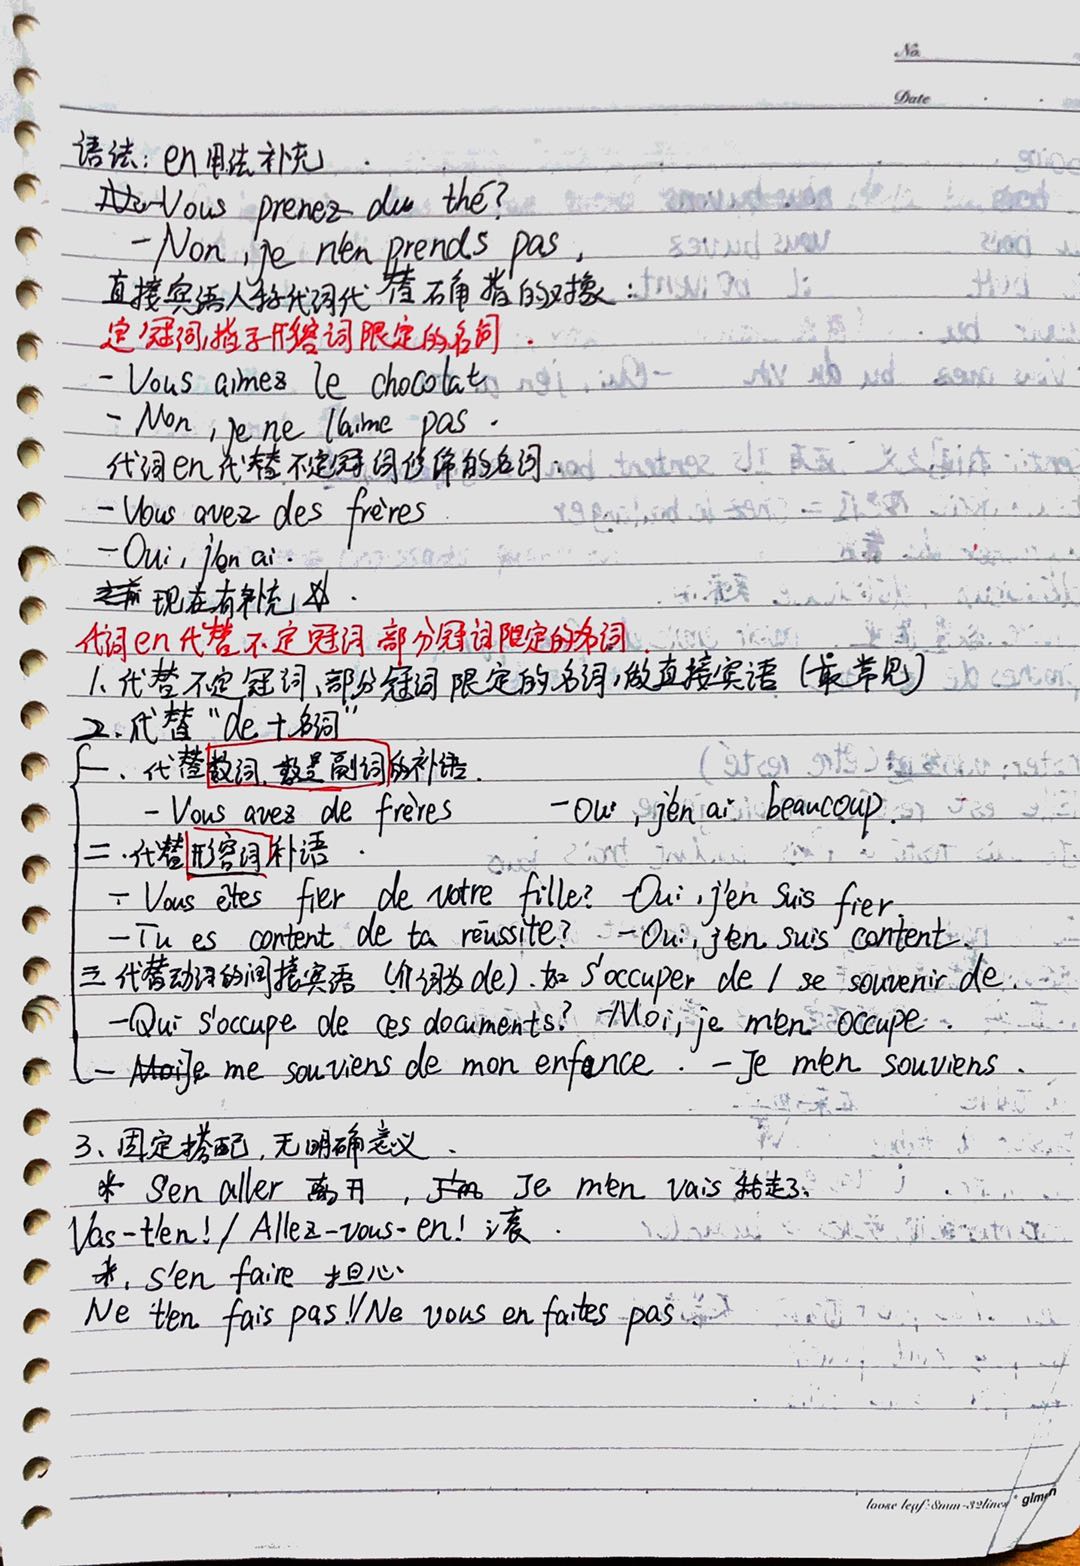 No.
Date
语法：en用法补充
-Vous prenez du thé?
-Non, je n'en prends pas,
直接宾语人称代词代替确指的对象：
定冠词,指示形容词限定的名词.
-Vous aimez le chocolat
-Non, je ne l'aime pas.
代词en代替不定冠词修饰的名词.
-Vous avez des frères
-Oui, j'en ai.
之前 现在有补充
代词en代替不定冠词部分冠词限定的名词.
1、代替不定冠词、部分冠词限定的名词,做直接宾语 (最常见)
2、代替"de+名词"
一、代替数词、数量副词的补语.
-Vous avez de frères -Oui, j'en ai beaucoup.
二.代替形容词补语.
-Vous êtes fier de votre fille? -Oui, j'en suis fier.
-Tu es content de ta réussite? -Oui, j'en suis content.
三 代替动词的间接宾语 (介词为de). 如 s'occuper de / se souvenir de.
-Qui s'occupe de ces documents? -Moi, je m'en occupe.
-Moi Je me souviens de mon enfance. -Je m'en souviens.
3、固定搭配,无明确意义.
* S'en aller 离开, Je m'en vais 我走了.
Vas-t'en! / Allez-vous-en! 滚.
*. s'en faire 担心
Ne t'en fais pas!/Ne vous en faites pas.
loose leaf:8mm-32lines